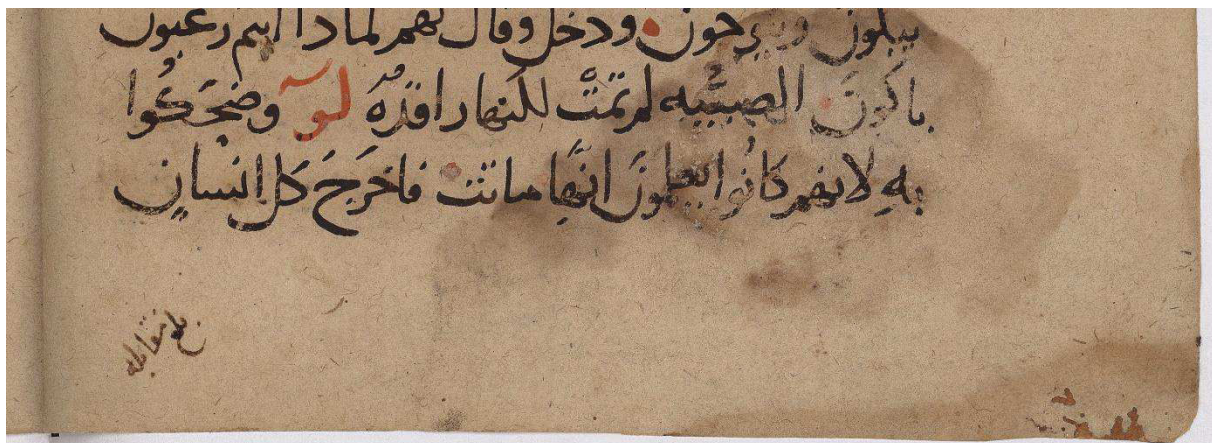 يبكون ويبوحون ودخل وقال لهم لماذا انتم رعبون
باكون الصبييه لم تمت لكنها راقده لو وضحكوا
به لانهم كانوا يعلمون انها ماتت فاخرج كل انسان